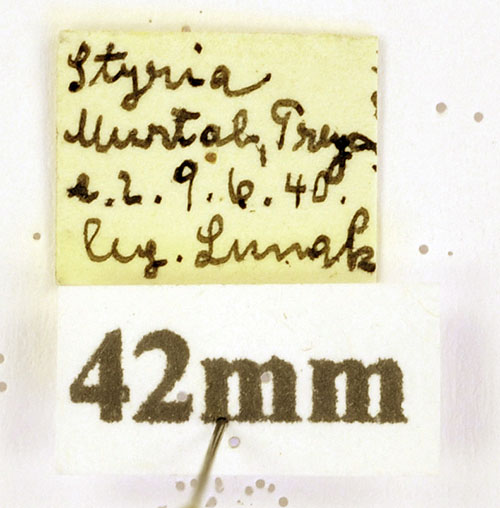 Styria
Murtal, Treg
e.l. 9.6.40.
leg. Lunak
42mm